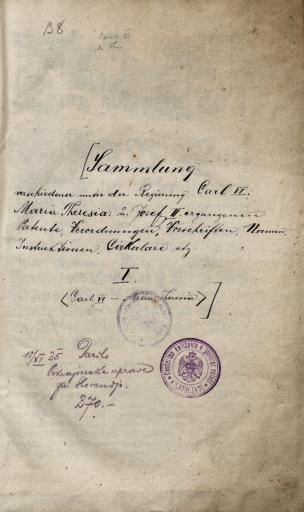 138
[Sammlung
verschiedener unter der Regierung Carl VI.
Maria Theresia u. Josef II. ergangenen
Patente, Verordnungen, Vorschriften, Normen,
Instruktionen, Cirkulare etz
I.
<Carl VI – Maria Theresia>]
10/XI 35 Darilo
Pokrajinske uprave
za Slovenijo.
270.–